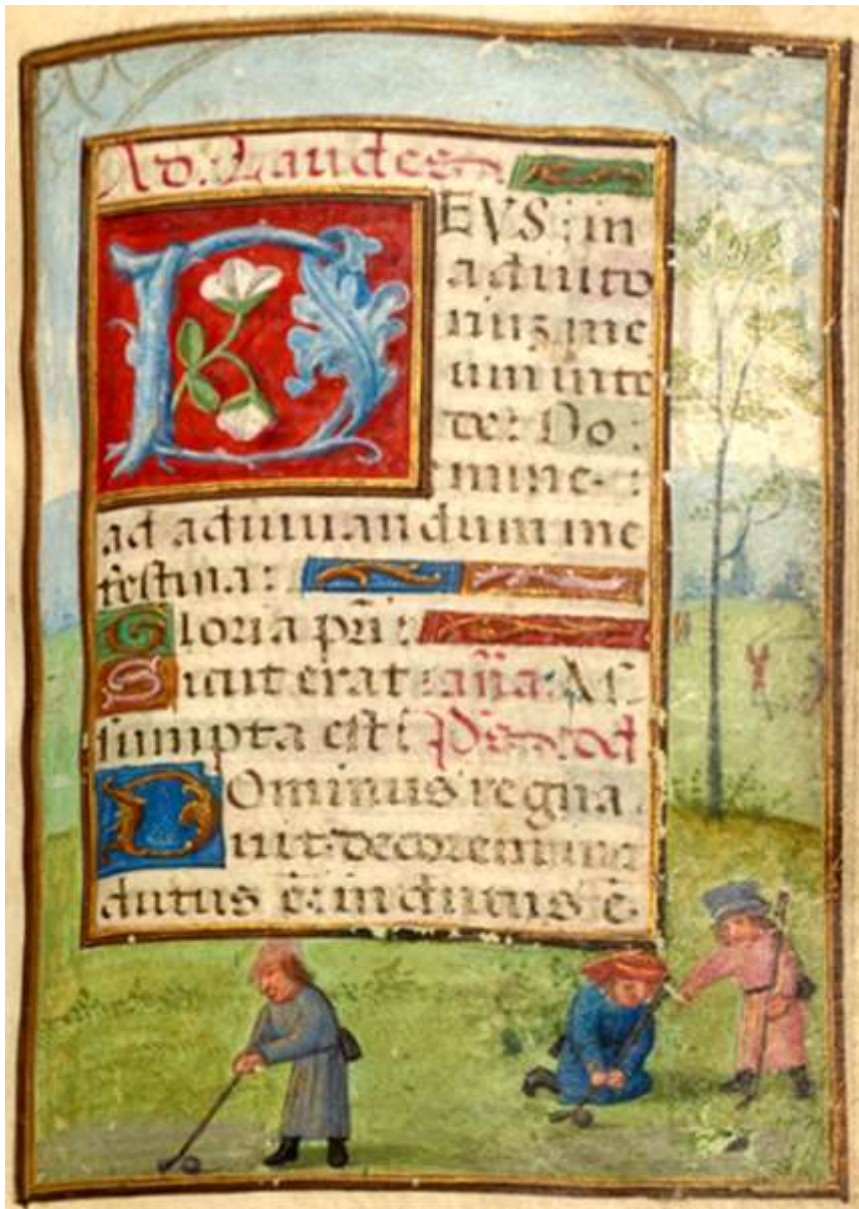 Ad. Laudes
DEVS: in
adiuto
riuʒ me
um inte
de: Do:
mine:
ad adiuuandum me
festina:
Gloria pri:
Sicut erat: aña: As
sumpta est: Ps. dd
Dominus regna
uit decorem in
dutus ē: indutus ē.